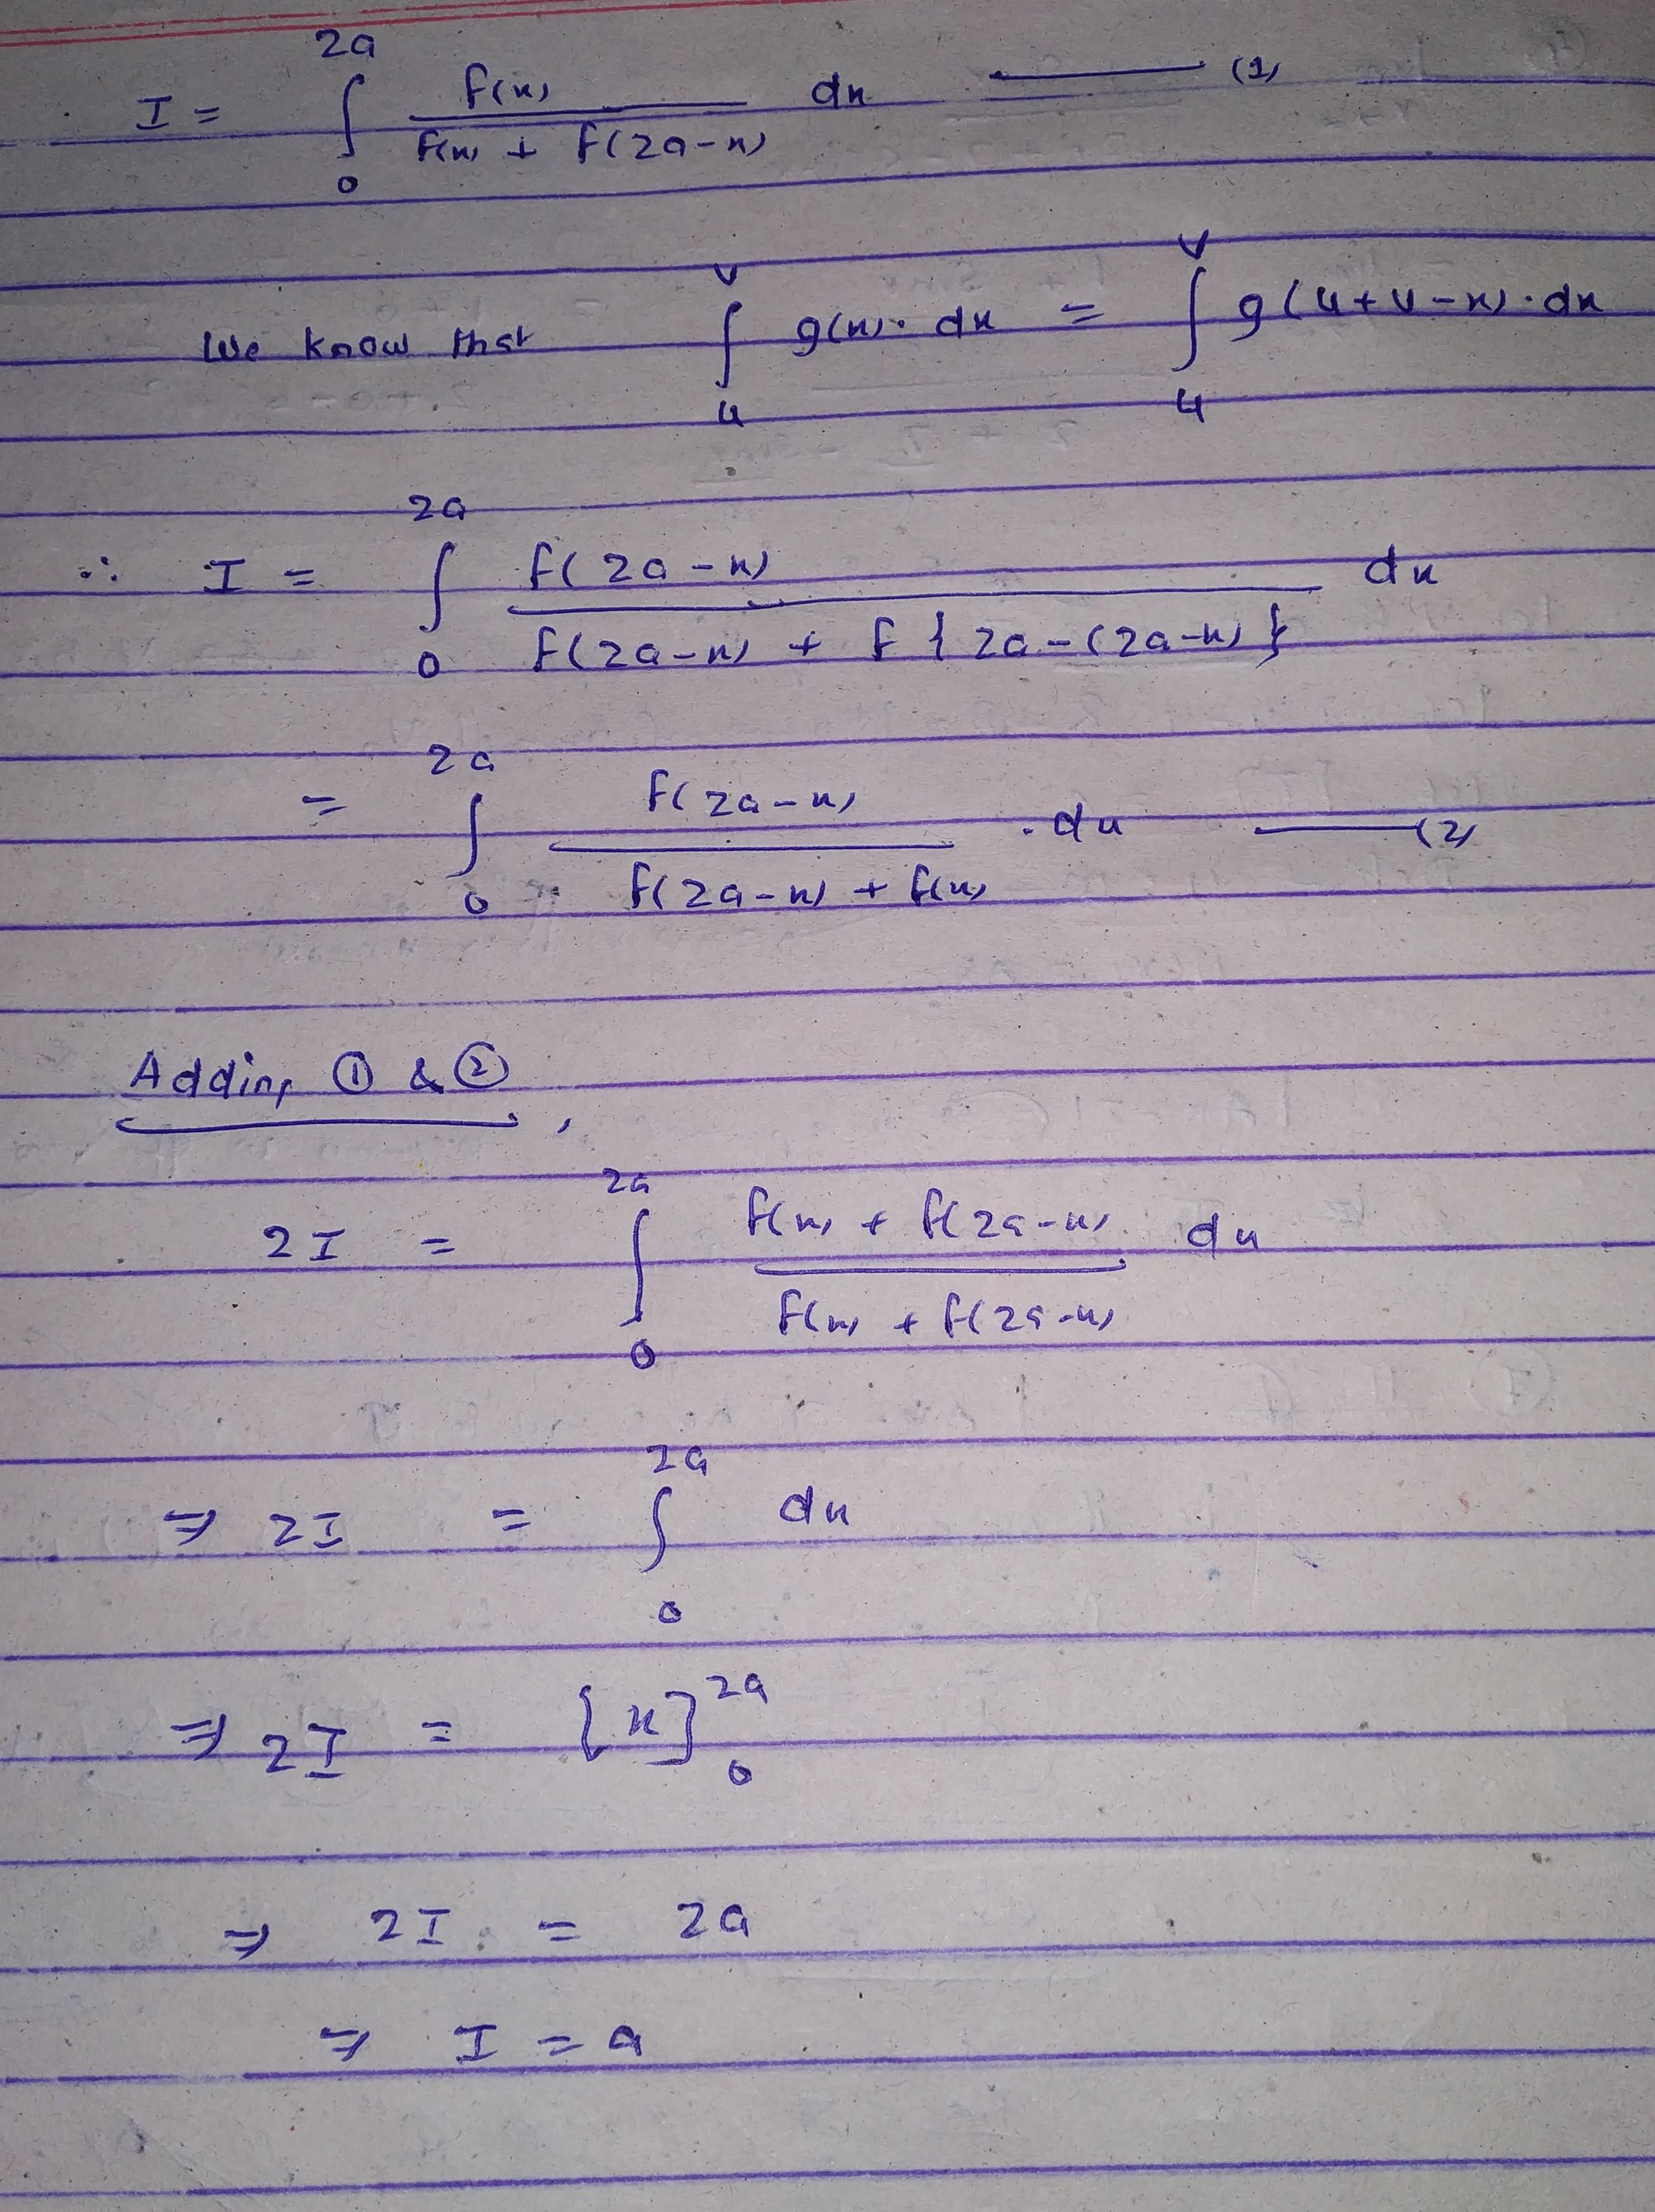 I = ∫₀^{2a} f(x) / (f(x) + f(2a-x)) dx ——— (1)
We know that ∫_u^v g(x)·dx = ∫_u^v g(u+v-x)·dx
∴ I = ∫₀^{2a} f(2a-x) / (f(2a-x) + f{2a-(2a-x)}) dx
= ∫₀^{2a} f(2a-x) / (f(2a-x) + f(x)) ·dx ——— (2)
Adding ① & ②,
2I = ∫₀^{2a} (f(x) + f(2a-x)) / (f(x) + f(2a-x)) dx
⇒ 2I = ∫₀^{2a} dx
⇒ 2I = [x]₀^{2a}
⇒ 2I = 2a
⇒ I = a